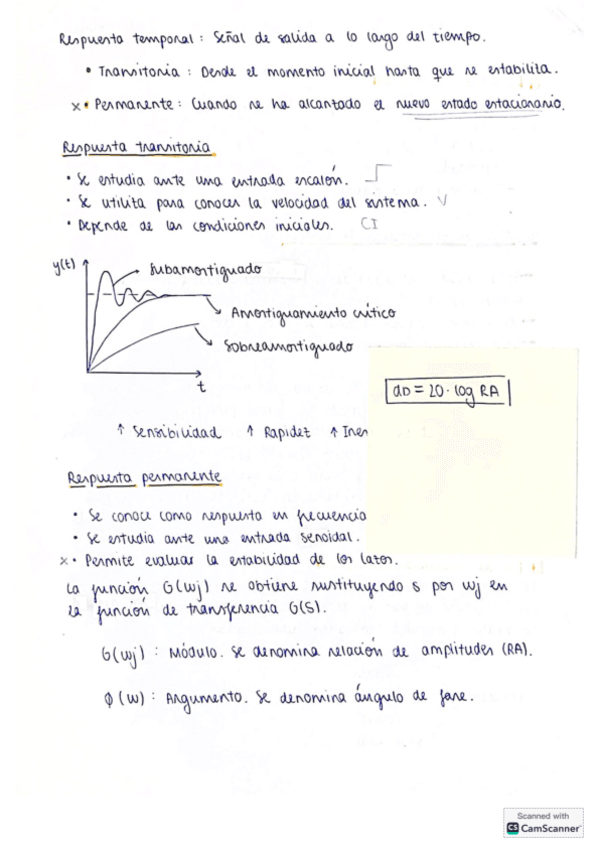 Respuesta temporal: Señal de salida a lo largo del tiempo.
• Transitoria: Desde el momento inicial hasta que se estabiliza.
x • Permanente: Cuando se ha alcanzado el nuevo estado estacionario.
Respuesta transitoria
• Se estudia ante una entrada escalón.
• Se utiliza para conocer la velocidad del sistema. V
• Depende de las condiciones iniciales. CI
y(t)
Subamortiguado
Amortiguamiento crítico
Sobreamortiguado
t
dD = 20 · log RA
↑ Sensibilidad ↑ Rapidez ↑ Iner
Respuesta permanente
• Se conoce como respuesta en frecuencia
• Se estudia ante una entrada senoidal.
x • Permite evaluar la estabilidad de los lazos.
La función G(wj) se obtiene sustituyendo s por wj en
la función de transferencia G(s).
G(wj): Módulo. Se denomina relación de amplitudes (RA).
φ(w): Argumento. Se denomina ángulo de fase.
Scanned with
CS CamScanner